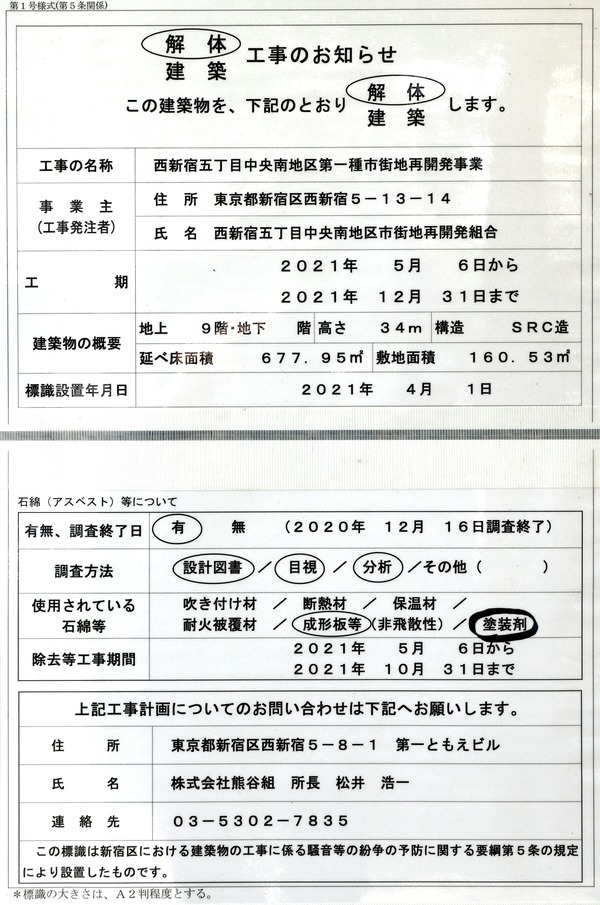 第１号様式(第５条関係)
解　体
建　築
工事のお知らせ
この建築物を、下記のとおり
解　体
建　築
します。
工事の名称　西新宿五丁目中央南地区第一種市街地再開発事業
事　業　主
(工事発注者)
住　所　東京都新宿区西新宿５－１３－１４
氏　名　西新宿五丁目中央南地区市街地再開発組合
工　期　２０２１年　５月　６日から
２０２１年　１２月　３１日まで
建築物の概要
地上　９階・地下　階　高さ　３４ｍ　構造　ＳＲＣ造
延べ床面積　６７７．９５㎡　敷地面積　１６０．５３㎡
標識設置年月日　２０２１年　４月　１日
石綿（アスベスト）等について
有無、調査終了日　有　無　（２０２０年　１２月　１６日調査終了）
調査方法　設計図書　／　目視　／　分析　／その他（　　　）
使用されている
石綿等
吹き付け材　／　断熱材　／　保温材　／
耐火被覆材　／　成形板等（非飛散性）／　塗装剤
除去等工事期間　２０２１年　５月　６日から
２０２１年　１０月　３１日まで
上記工事計画についてのお問い合わせは下記へお願いします。
住　所　東京都新宿区西新宿５－８－１　第一ともえビル
氏　名　株式会社熊谷組　所長　松井　浩一
連　絡　先　０３－５３０２－７８３５
この標識は新宿区における建築物の工事に係る騒音等の紛争の予防に関する要綱第５条の規定
により設置したものです。
＊標識の大きさは、Ａ２判程度とする。